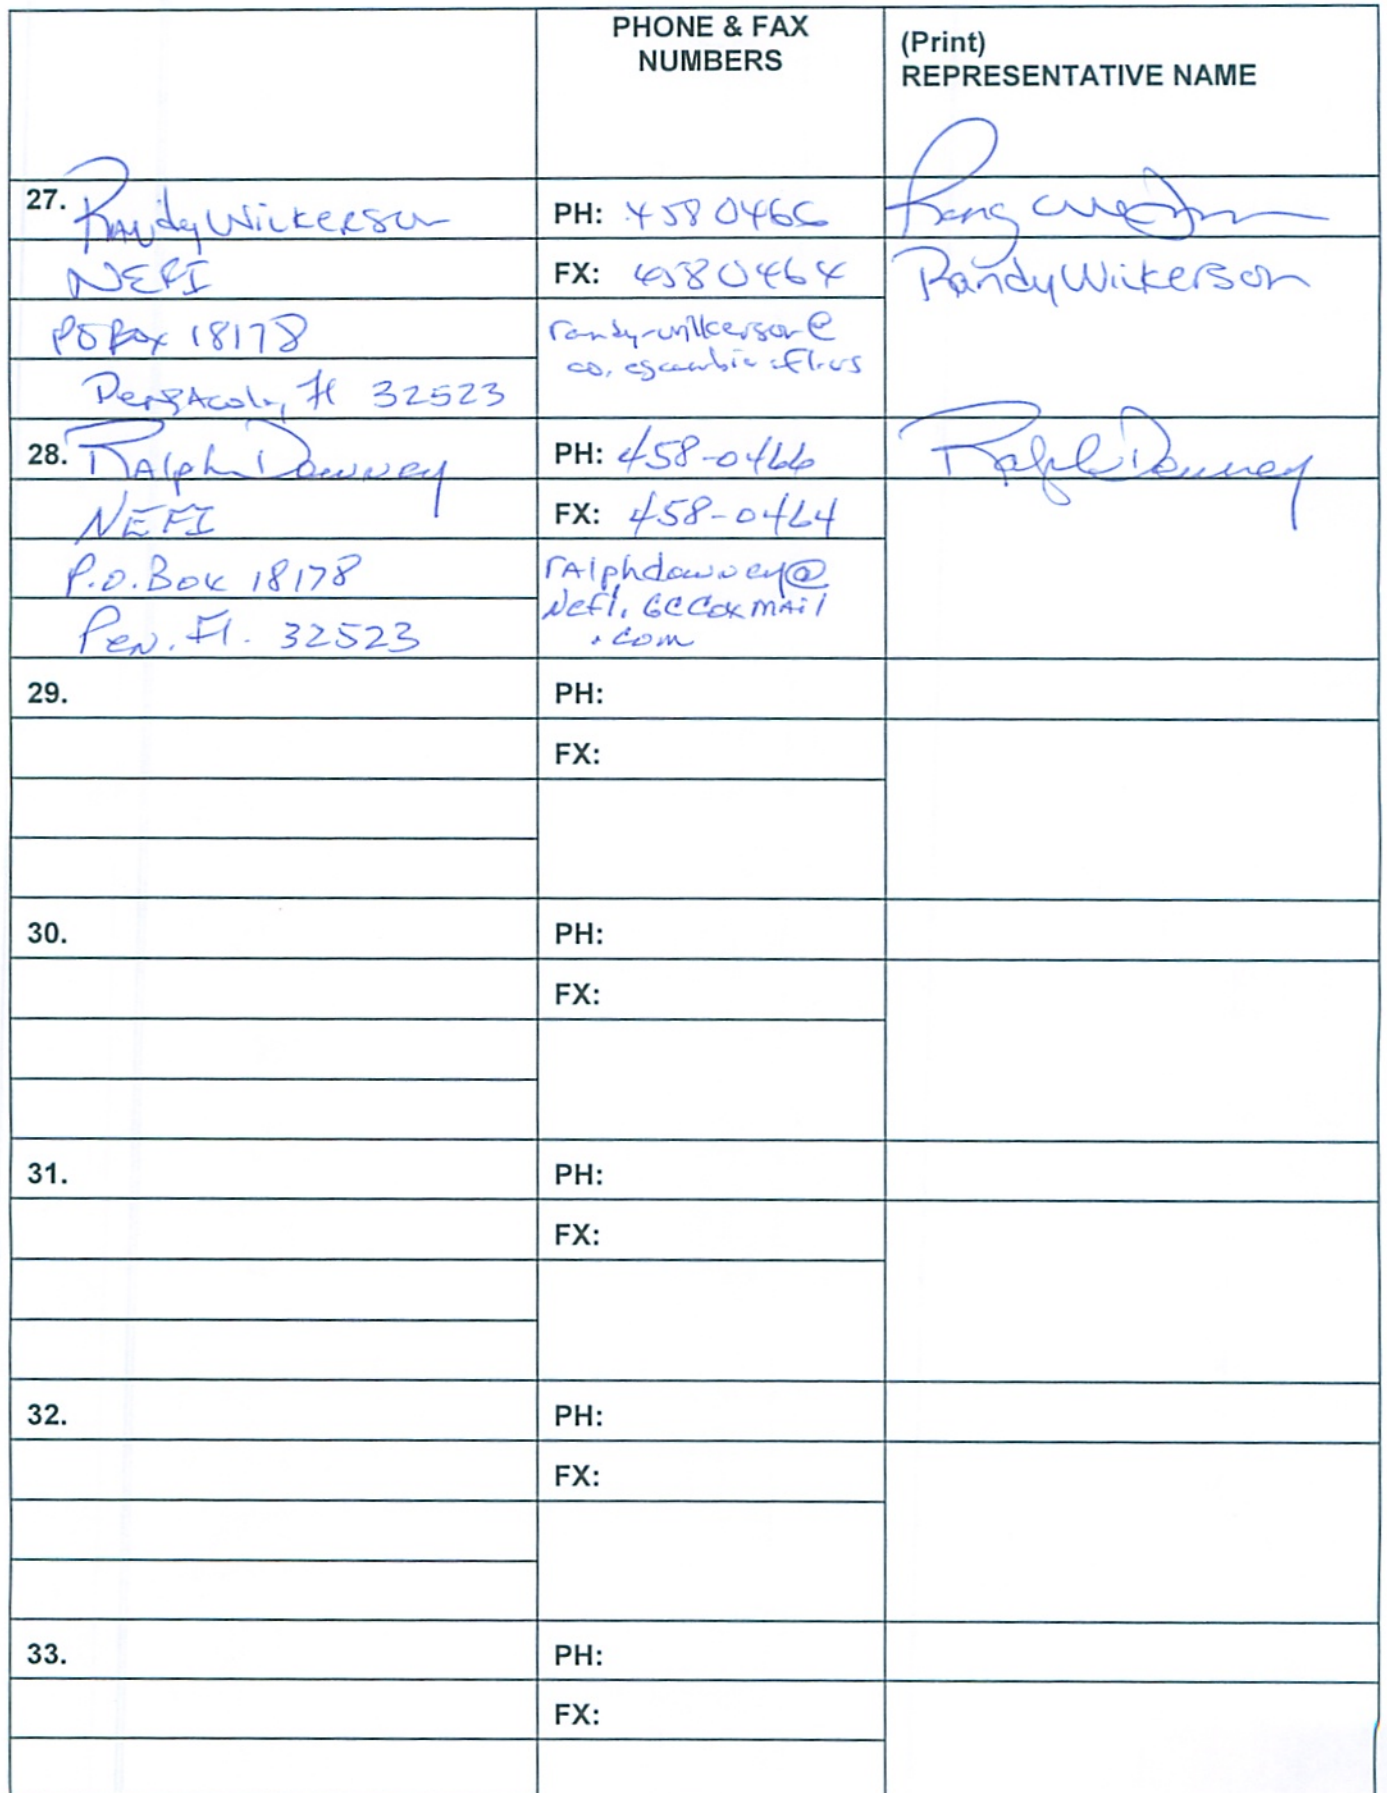 PHONE & FAX
NUMBERS
(Print)
REPRESENTATIVE NAME
27. Randy Wilkerson
PH: 4580466
NEFI
FX: 4580464
Randy Wilkerson
PO Box 18178
randy-wilkerson@
co.escambia.fl.us
Pensacola, Fl 32523
28. Ralph Downey
PH: 458-0466
Ralph Downey
NEFI
FX: 458-0464
P.O. Box 18178
ralphdowney@
Nefi.GCCoxmail
.com
Pen. Fl. 32523
29.
PH:
FX:
30.
PH:
FX:
31.
PH:
FX:
32.
PH:
FX:
33.
PH:
FX: